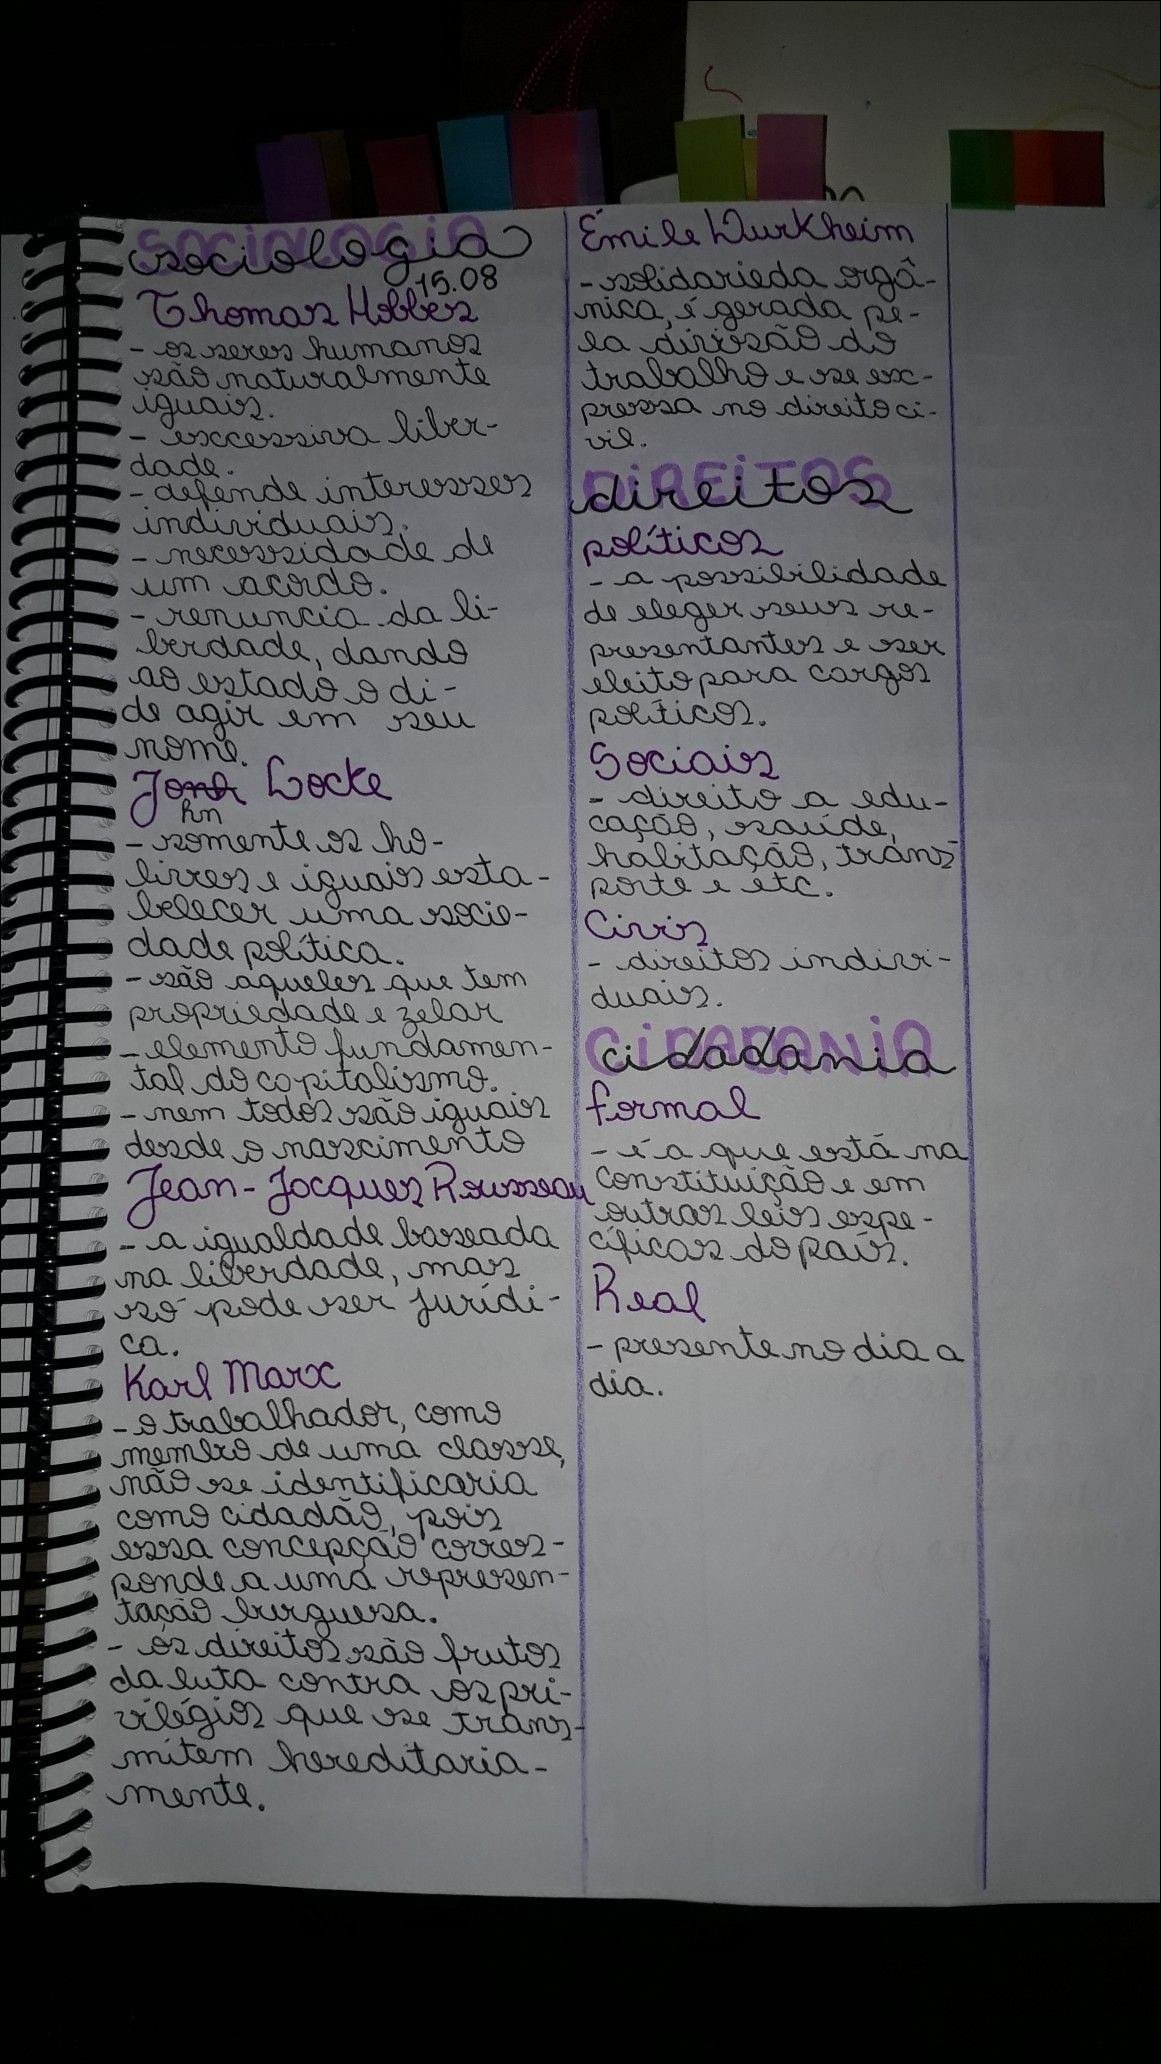 SOCIOLOGIA
sociologia
15.08
Thomas Hobbes
- os seres humanos
são naturalmente
iguais.
- exccessiva liber-
dade.
- defende interesses
individuais.
- necessidade de
um acordo.
- renuncia da li-
berdade, dando
ao estado o di-
de agir em seu
nome.
John Locke
hn
- somente os ho-
livres e iguais esta-
belecer uma socie-
dade política.
- são aqueles que tem
propriedade e zelar
- elemento fundamen-
tal do capitalismo.
- nem todos são iguais
desde o nascimento
Jean-Jacques Rousseau
- a igualdade baseada
na liberdade, mas
só pode ser jurídi-
ca.
Karl Marx
- o trabalhador, como
membro de uma classe,
não se identificaria
como cidadão, pois
essa concepção corres-
ponde a uma represen-
tação burguesa.
- os direitos são frutos
da luta contra os pri-
vilégios que se trans-
mitem hereditaria-
mente.
Émile Durkheim
- solidarieda orgâ-
nica, é gerada pe-
la divisão do
trabalho e se ex-
pressa no direito ci-
vil.
DIREITOS
direitos
políticos
- a possibilidade
de eleger seus re-
presentantes e ser
eleito para cargos
políticos.
Sociais
- direito a edu-
cação, saúde,
habitação, trans-
porte e etc.
Civis
- direitos indivi-
duais.
CIDADANIA
cidadania
formal
- é a que está na
constituição e em
outras leis espe-
cíficas do país.
Real
- presente no dia a
dia.